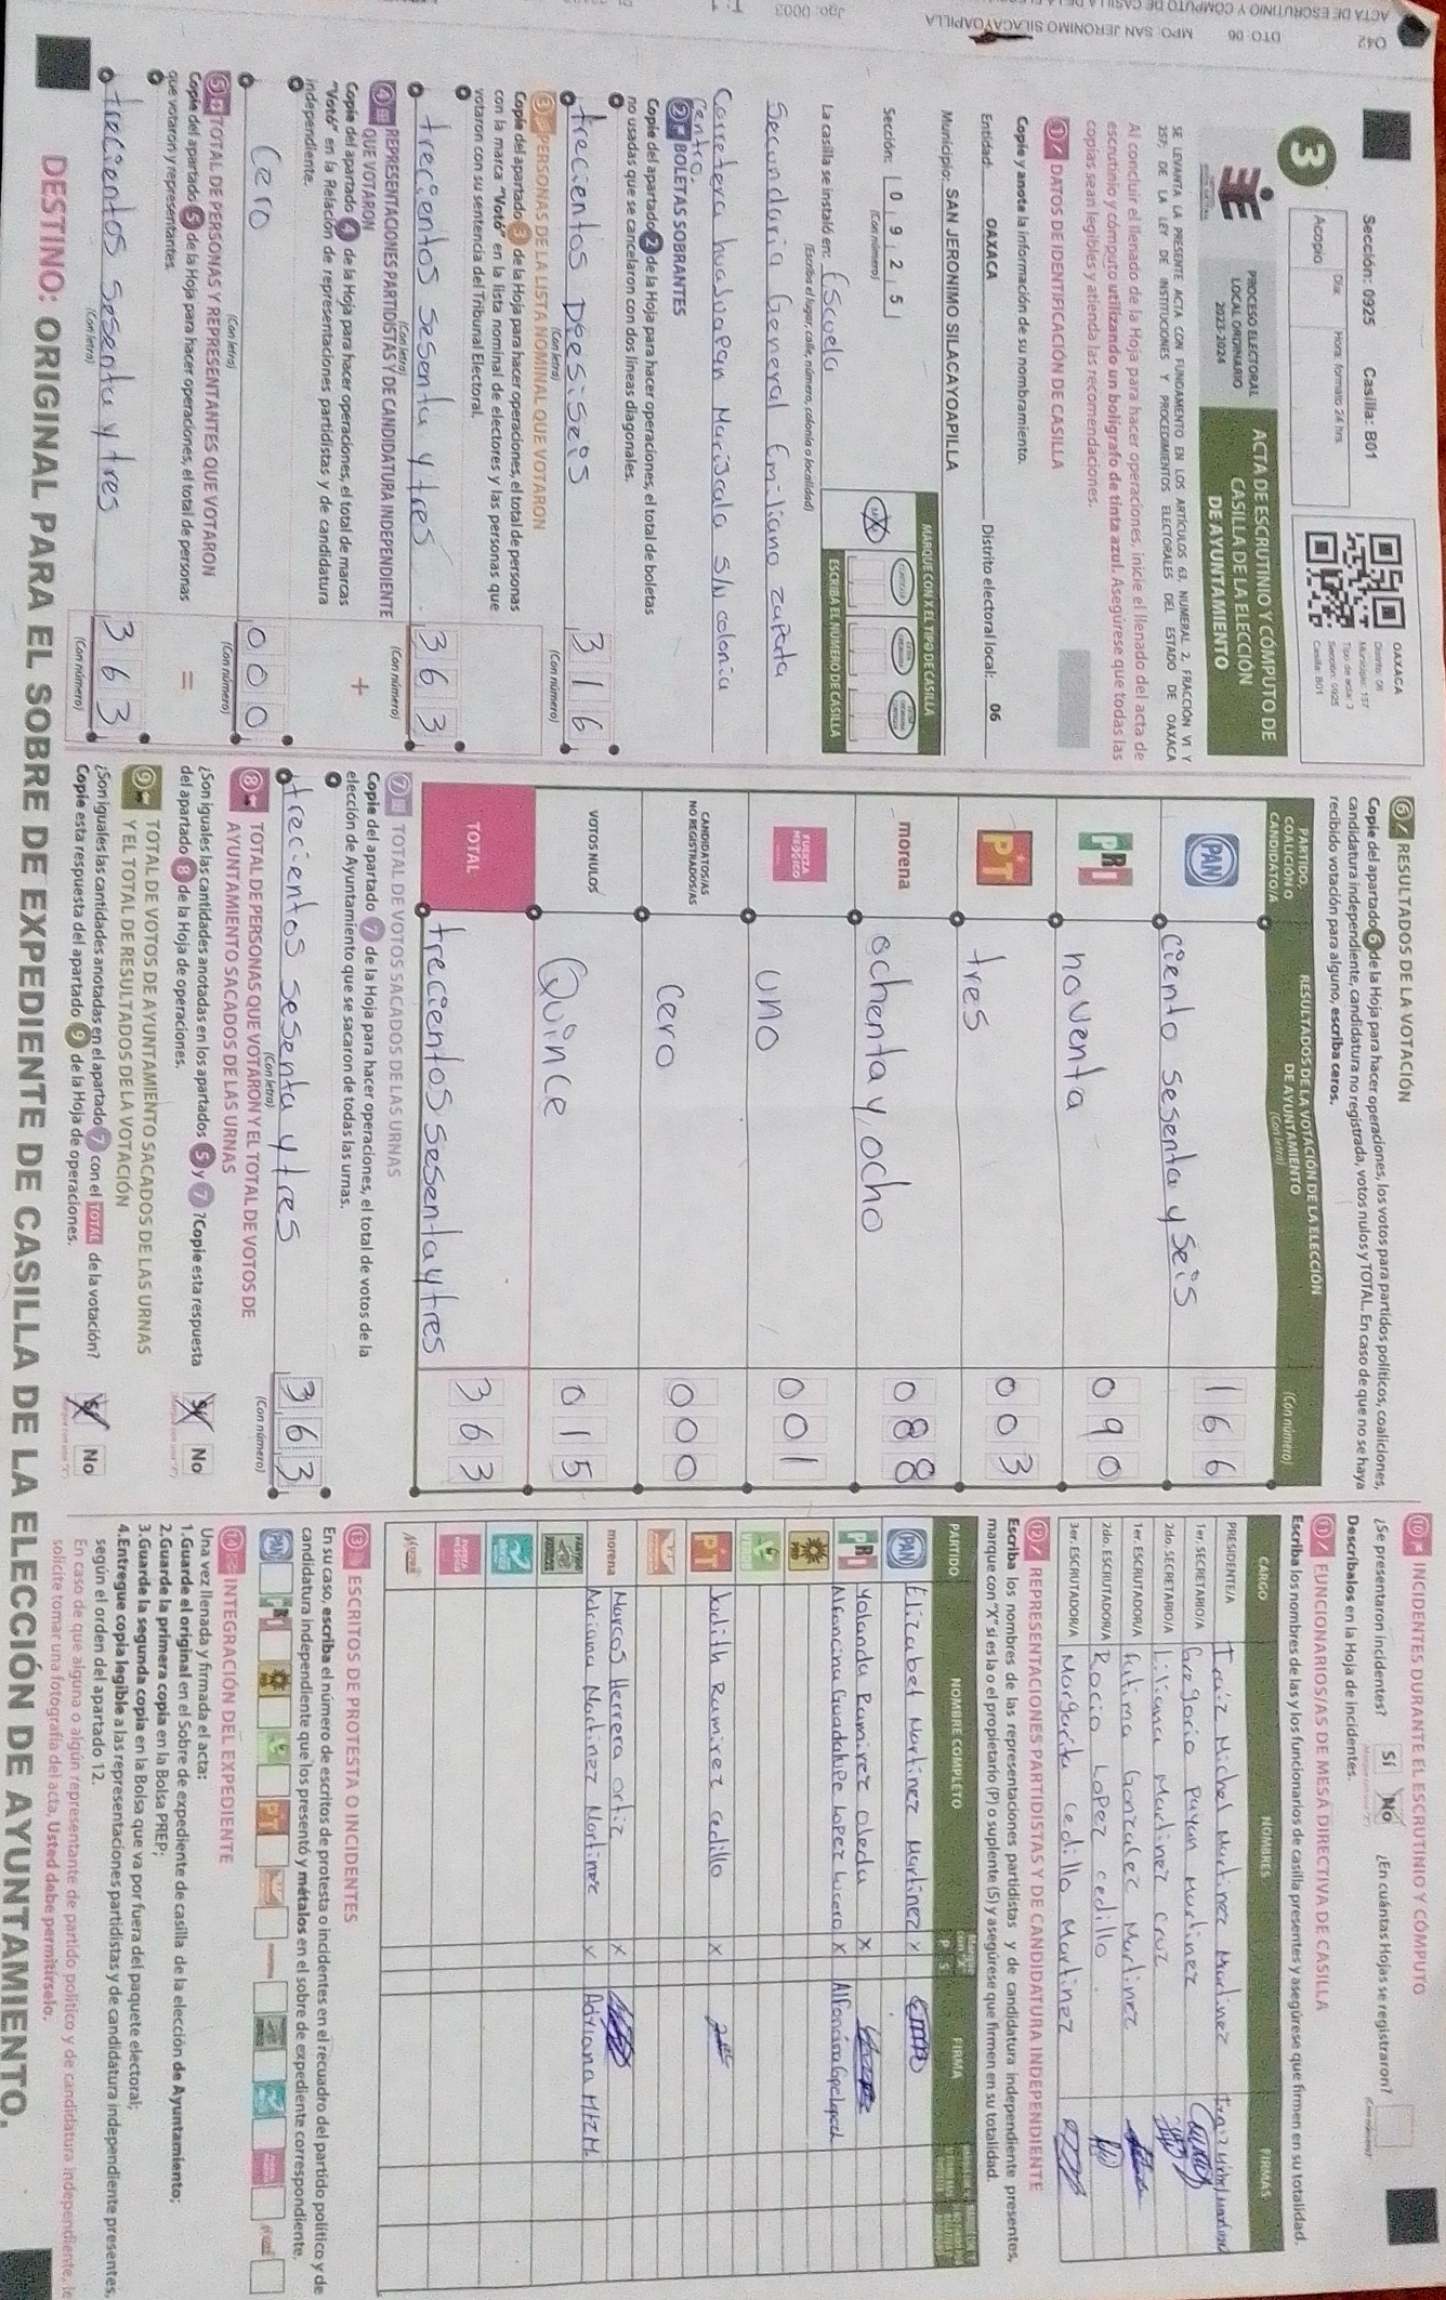 042 DTO. 06 MPO: SAN JERONIMO SILACAYOAPILLA
Sección: 0925 Casilla: B01
Día: Hora: formato 24 hrs.
Acopio
3
OAXACA
Distrito: 06
Municipio: 157
Tipo de acta: 3
Sección: 0925
Casilla: B01
PROCESO ELECTORAL
LOCAL ORDINARIO
2023-2024
ACTA DE ESCRUTINIO Y CÓMPUTO DE
CASILLA DE LA ELECCIÓN
DE AYUNTAMIENTO
SE LEVANTA LA PRESENTE ACTA CON FUNDAMENTO EN LOS ARTÍCULOS 63, NUMERAL 2, FRACCIÓN VI Y
257; DE LA LEY DE INSTITUCIONES Y PROCEDIMIENTOS ELECTORALES DEL ESTADO DE OAXACA
Al concluir el llenado de la Hoja para hacer operaciones, inicie el llenado del acta de
escrutinio y cómputo utilizando un bolígrafo de tinta azul. Asegúrese que todas las
copias sean legibles y atienda las recomendaciones.
1 DATOS DE IDENTIFICACIÓN DE CASILLA
Copie y anote la información de su nombramiento.
Entidad: OAXACA Distrito electoral local: 06
Municipio: SAN JERONIMO SILACAYOAPILLA
Sección: 0 9 2 5
(Con número)
MARQUE CON X EL TIPO DE CASILLA
ESCRIBA EL NÚMERO DE CASILLA
La casilla se instaló en: Escuela
(Escriba el lugar, calle, número, colonia o localidad)
Secundaria General Emiliano zapata
Carretera huajuapan Mariscala S/N colonia
Centro.
2 BOLETAS SOBRANTES
Copie del apartado 2 de la Hoja para hacer operaciones, el total de boletas
no usadas que se cancelaron con dos líneas diagonales.
trecientos Dieisiseis 3 1 6
(Con letra) (Con número)
3 PERSONAS DE LA LISTA NOMINAL QUE VOTARON
Copie del apartado 3 de la Hoja para hacer operaciones, el total de personas
con la marca "Votó" en la lista nominal de electores y las personas que
votaron con su sentencia del Tribunal Electoral.
trecientos sesenta y tres 3 6 3
(Con letra) (Con número)
4 REPRESENTACIONES PARTIDISTAS Y DE CANDIDATURA INDEPENDIENTE
QUE VOTARON
Copie del apartado 4 de la Hoja para hacer operaciones, el total de marcas
"Votó" en la Relación de representaciones partidistas y de candidatura
independiente.
+
Cero 0 0 0
(Con letra) (Con número)
5 TOTAL DE PERSONAS Y REPRESENTANTES QUE VOTARON
Copie del apartado 5 de la Hoja para hacer operaciones, el total de personas
que votaron y representantes.
=
trecientos sesenta y tres 3 6 3
(Con letra) (Con número)
6 RESULTADOS DE LA VOTACIÓN
Copie del apartado 6 de la Hoja para hacer operaciones, los votos para partidos políticos, coaliciones,
candidatura independiente, candidatura no registrada, votos nulos y TOTAL. En caso de que no se haya
recibido votación para alguno, escriba ceros.
PARTIDO,
COALICIÓN O
CANDIDATO/A
RESULTADOS DE LA VOTACIÓN DE LA ELECCIÓN
DE AYUNTAMIENTO
(Con letra) (Con número)
PAN Ciento sesenta y seis 1 6 6
PRI noventa 0 9 0
PT tres 0 0 3
morena ochenta y ocho 0 8 8
FUERZA MÉXICO uno 0 0 1
CANDIDATOS/AS
NO REGISTRADOS/AS Cero 0 0 0
VOTOS NULOS Quince 0 1 5
TOTAL trecientos sesenta y tres 3 6 3
7 TOTAL DE VOTOS SACADOS DE LAS URNAS
Copie del apartado 7 de la Hoja para hacer operaciones, el total de votos de la
elección de Ayuntamiento que se sacaron de todas las urnas.
trecientos sesenta y tres 3 6 3
(Con letra) (Con número)
8 TOTAL DE PERSONAS QUE VOTARON Y EL TOTAL DE VOTOS DE
AYUNTAMIENTO SACADOS DE LAS URNAS
¿Son iguales las cantidades anotadas en los apartados 5 y 7? Copie esta respuesta
del apartado 8 de la Hoja de operaciones.
Sí No
9 TOTAL DE VOTOS DE AYUNTAMIENTO SACADOS DE LAS URNAS
Y EL TOTAL DE RESULTADOS DE LA VOTACIÓN
¿Son iguales las cantidades anotadas en el apartado 7 con el TOTAL de la votación?
Copie esta respuesta del apartado 9 de la Hoja de operaciones.
Sí No
10 INCIDENTES DURANTE EL ESCRUTINIO Y CÓMPUTO
¿Se presentaron incidentes? Sí No ¿En cuántas Hojas se registraron?
Descríbalos en la Hoja de incidentes.
11 FUNCIONARIOS/AS DE MESA DIRECTIVA DE CASILLA
Escriba los nombres de las y los funcionarios de casilla presentes y asegúrese que firmen en su totalidad.
CARGO NOMBRES FIRMAS
PRESIDENTE/A Traiz Michel Martinez Martinez
1er. SECRETARIO/A Gregorio Payan Martinez
2do. SECRETARIO/A Liliana Martinez Cruz
1er. ESCRUTADOR/A Fatima Gonzalez Martinez
2do. ESCRUTADOR/A Rocio Lopez cedillo
3er. ESCRUTADOR/A Margarita cedillo Martinez
12 REPRESENTACIONES PARTIDISTAS Y DE CANDIDATURA INDEPENDIENTE
Escriba los nombres de las representaciones partidistas y de candidatura independiente presentes,
marque con "X" si es la o el propietario (P) o suplente (S) y asegúrese que firmen en su totalidad.
PARTIDO NOMBRE COMPLETO P S FIRMA
PAN Elizabet Martinez Martinez X
PRI Yolanda Ramirez Oleda X
Alfoncina Guadalupe Lopez Lucero X
PRD
VERDE
PT Judith Ramirez cedillo X
morena Marcos Herrera Ortiz X
Adriana Martinez Martinez X Adriana Mtz M.
13 ESCRITOS DE PROTESTA O INCIDENTES
En su caso, escriba el número de escritos de protesta o incidentes en el recuadro del partido político y de
candidatura independiente que los presentó y métalos en el sobre de expediente correspondiente.
14 INTEGRACIÓN DEL EXPEDIENTE
Una vez llenada y firmada el acta:
1.Guarde el original en el Sobre de expediente de casilla de la elección de Ayuntamiento;
2.Guarde la primera copia en la Bolsa PREP;
3.Guarde la segunda copia en la Bolsa que va por fuera del paquete electoral;
4.Entregue copia legible a las representaciones partidistas y de candidatura independiente presentes,
según el orden del apartado 12.
En caso de que alguna o algún representante de partido político y de candidatura independiente, le
solicite tomar una fotografía del acta, Usted debe permitírselo.
DESTINO: ORIGINAL PARA EL SOBRE DE EXPEDIENTE DE CASILLA DE LA ELECCIÓN DE AYUNTAMIENTO.